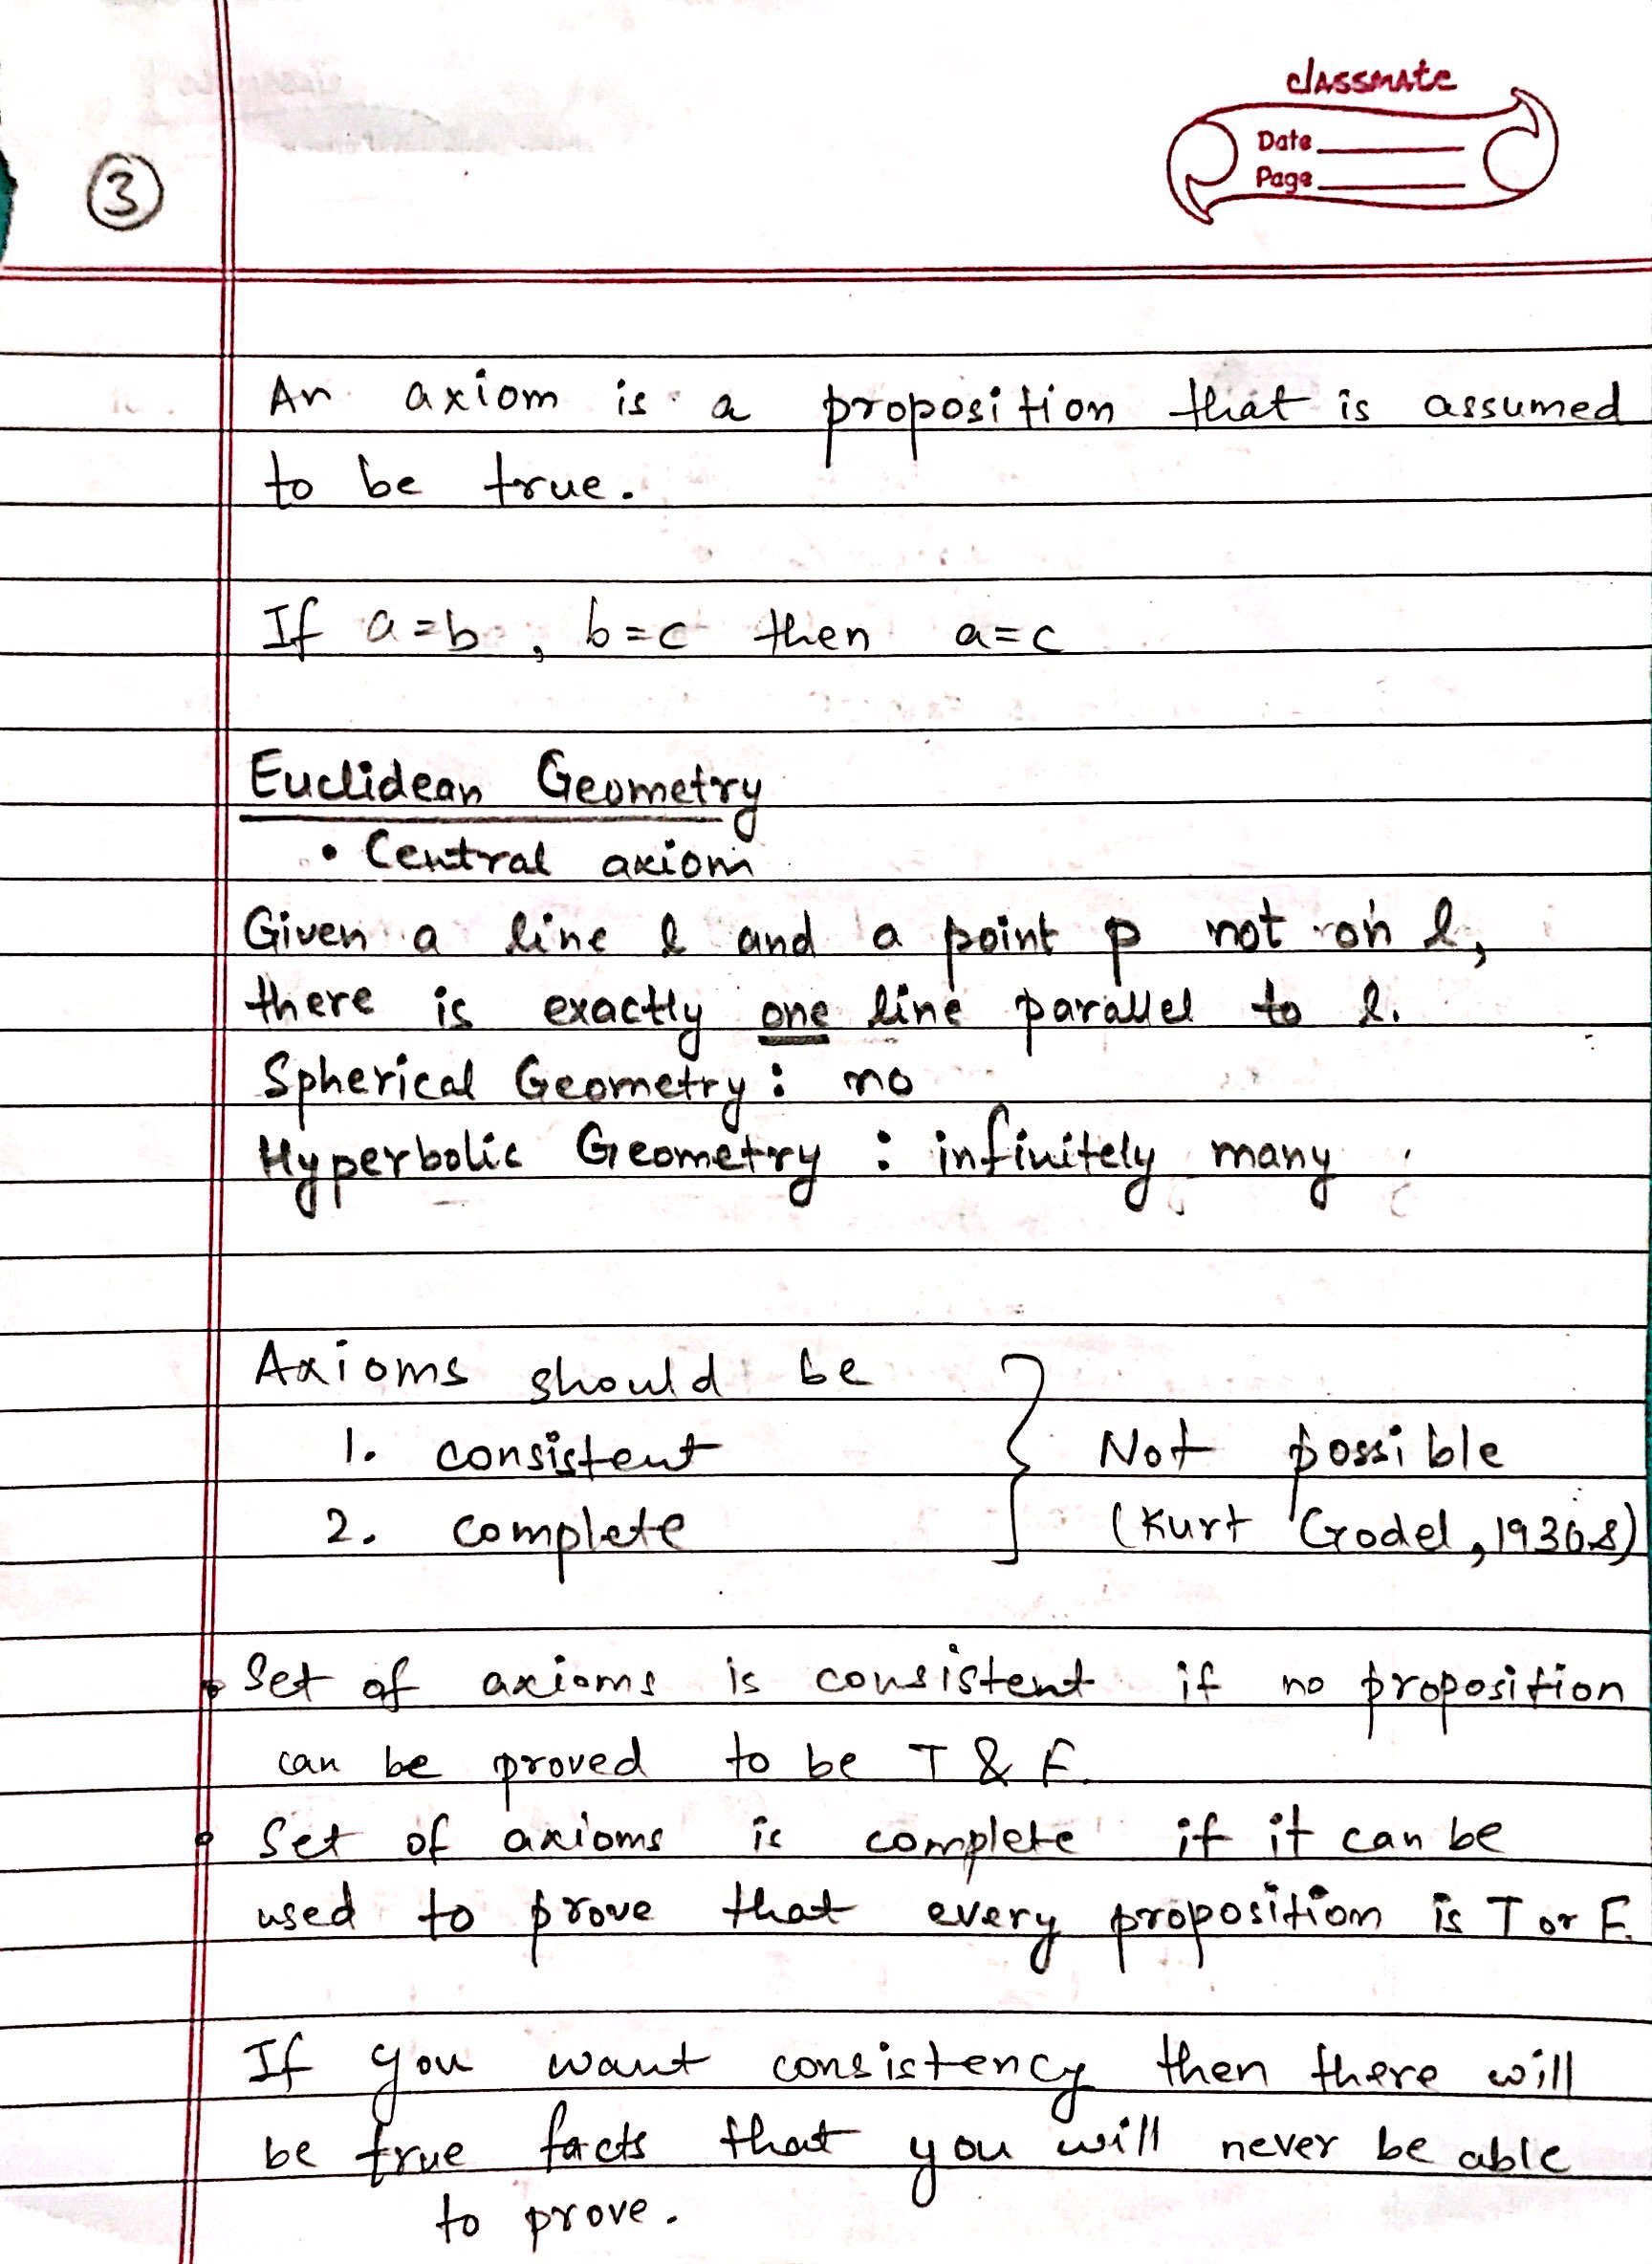 classmate
Date
Page
3
An axiom is a proposition that is assumed
to be true.
If a=b, b=c then a=c
Euclidean Geometry
• Central axiom
Given a line l and a point p not on l,
there is exactly one line parallel to l.
Spherical Geometry: no
Hyperbolic Geometry : infinitely many
Axioms should be
1. consistent
2. complete
} Not possible
(Kurt Godel, 1930s)
• Set of axioms is consistent if no proposition
can be proved to be T & F.
• Set of axioms is complete if it can be
used to prove that every proposition is T or F.
If you want consistency then there will
be true facts that you will never be able
to prove.